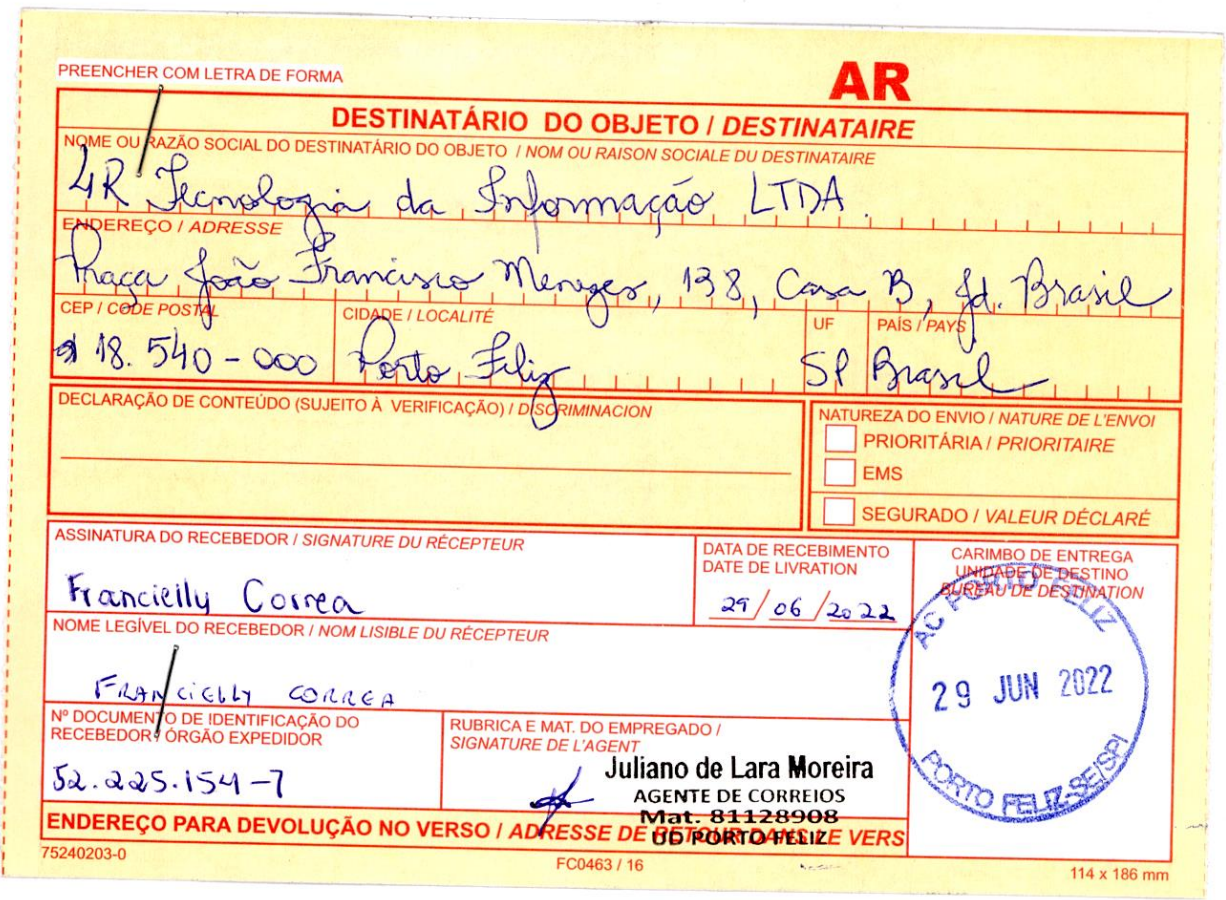 PREENCHER COM LETRA DE FORMA
AR
DESTINATÁRIO DO OBJETO / DESTINATAIRE
NOME OU RAZÃO SOCIAL DO DESTINATÁRIO DO OBJETO / NOM OU RAISON SOCIALE DU DESTINATAIRE
4R Tecnologia da Informação LTDA.
ENDEREÇO / ADRESSE
Praça João Francisco Menezes, 138, Casa B, Jd. Brasil
CEP / CODE POSTAL
CIDADE / LOCALITÉ
UF
PAÍS / PAYS
18.540-000 Porto Feliz SP Brasil
DECLARAÇÃO DE CONTEÚDO (SUJEITO À VERIFICAÇÃO) / DISCRIMINACION
NATUREZA DO ENVIO / NATURE DE L'ENVOI
PRIORITÁRIA / PRIORITAIRE
EMS
SEGURADO / VALEUR DÉCLARÉ
ASSINATURA DO RECEBEDOR / SIGNATURE DU RÉCEPTEUR
Francielly Correa
DATA DE RECEBIMENTO
DATE DE LIVRATION
29/06/2022
CARIMBO DE ENTREGA
UNIDADE DE DESTINO
BUREAU DE DESTINATION
AC PORTO FELIZ
29 JUN 2022
PORTO FELIZ-SE/SPI
NOME LEGÍVEL DO RECEBEDOR / NOM LISIBLE DU RÉCEPTEUR
FRANCIELLY CORREA
Nº DOCUMENTO DE IDENTIFICAÇÃO DO
RECEBEDOR / ÓRGÃO EXPEDIDOR
52.225.154-7
RUBRICA E MAT. DO EMPREGADO /
SIGNATURE DE L'AGENT
Juliano de Lara Moreira
AGENTE DE CORREIOS
Mat. 81128908
UD PORTO FELIZ
ENDEREÇO PARA DEVOLUÇÃO NO VERSO / ADRESSE DE RETOUR DANS LE VERS
75240203-0
FC0463 / 16
114 x 186 mm